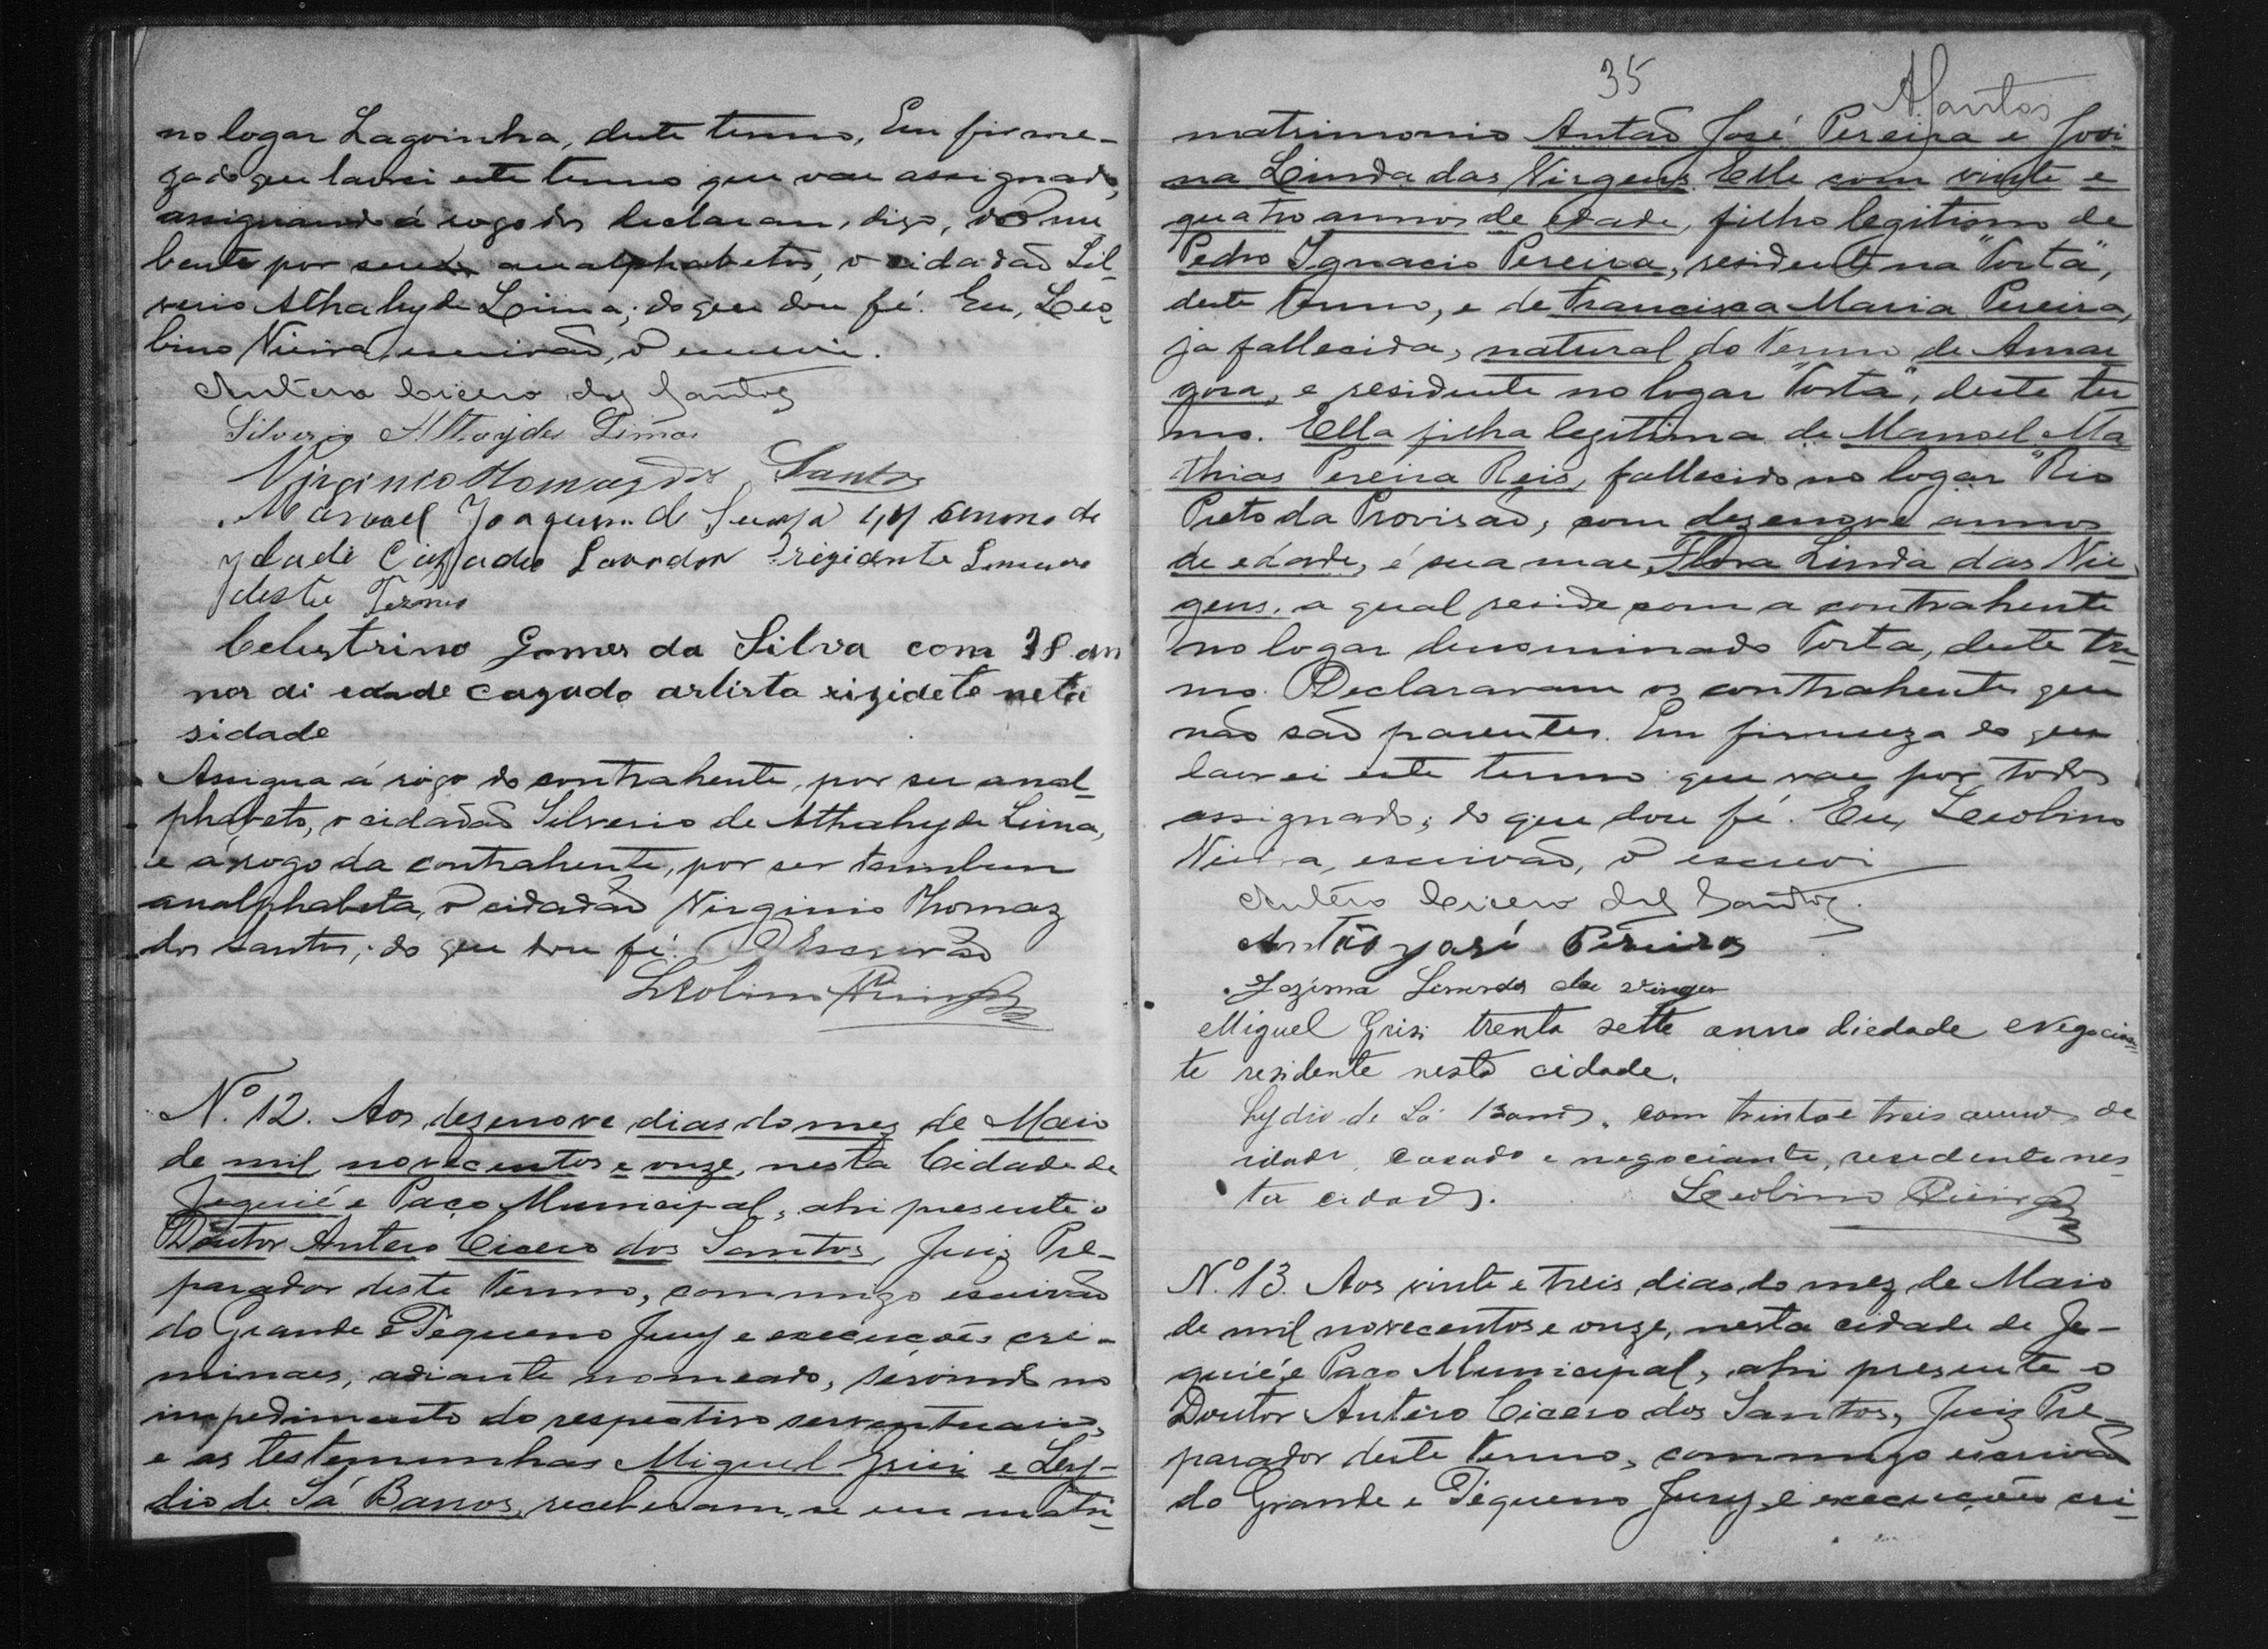 no logar Lagoinha, deste termo, Em firme-
za do que lavrei este termo que vae assignado,
assignando á rogo dos declaran, digo, dos nu
bente por serem analphabetos, o cidadão Sil-
verio Athahyde Lima; do que dou fé. Eu, Leo-
lino Vieira, escrivão, o escrevi.
Antero Cicero dos Santos
Silverio Athayde Lima
Virginio Thomaz dos Santos
Manoel Joaquim de Souza 44 annos de
ydade Cazado Lavrador Rezidente
deste Termo
Celestrino Gomes da Silva com 38 an
nos di edade cazado artista rizidete neta
sidade
Assigna á rogo do contrahente, por ser anal-
phabeto, o cidadão Silverio de Athahyde Lima,
e á rogo da contrahente, por ser tambem
analphabeta, o cidadão Virginio Thomaz
dos Santos; do que dou fé. O Escrivão
Leolino Vieira
N.º 12. Aos dezenove dias do mez de Maio
de mil novecentos e onze, nesta Cidade de
Jequié e Paço Municipal, ahi presente o
Doutor Antero Cicero dos Santos, Juiz Pre-
parador deste termo, commigo escrivão
do Grande e Pequeno Jury e execuções cri-
minaes, adiante nomeado, servindo no
impedimento do respectivo serventuario,
e as testemunhas Miguel Grisi e Ly-
dio de Sá Barros, receberam-se em matri-
35 ASantos
matrimonio Antão José Pereira e Jovi
na Linda das Virgens. Elle com vinte e
quatro annos de edade, filho legitimo de
Pedro Ignacio Pereira, residente na "Torta",
deste termo, e de Francisca Maria Pereira,
ja fallecida, natural do termo de Amar
gosa, e residente no logar "Torta", deste ter
mo. Ella filha legitima de Manoel Ma
thias Pereira Reis, fallecido no logar "Rio
Preto da Provisão, com dezenove annos
de edade, é sua mae, Flora Linda das Vir
gens, a qual reside com a contrahente
no logar denominado Torta, deste ter-
mo. Declararam os contrahentes que
não são parentes. Em firmeza do que
lavrei este termo que vae por todos
assignado; do que dou fé. Eu, Leolino
Vieira, escrivão, o escrevi
Antero Cicero dos Santos.
Antão josé Pereira
Miguel Grisi trenta sette anno diedade Negocian-
te residente nesta cidade.
Lydio de Sá Barros, com trinta e treis annos de
idade, casado e negociante, resedente nes
ta cidade. Leolino Vieira
N.º 13. Aos vinte e treis dias do mez de Maio
de mil novecentos e onze, nesta cidade de Je-
quié, e Paço Municipal, ahi presente o
Doutor Antero Cicero dos Santos, Juiz Pre-
parador deste termo, commigo escrivão
do Grande e Pequeno Jury, e execuções cri-